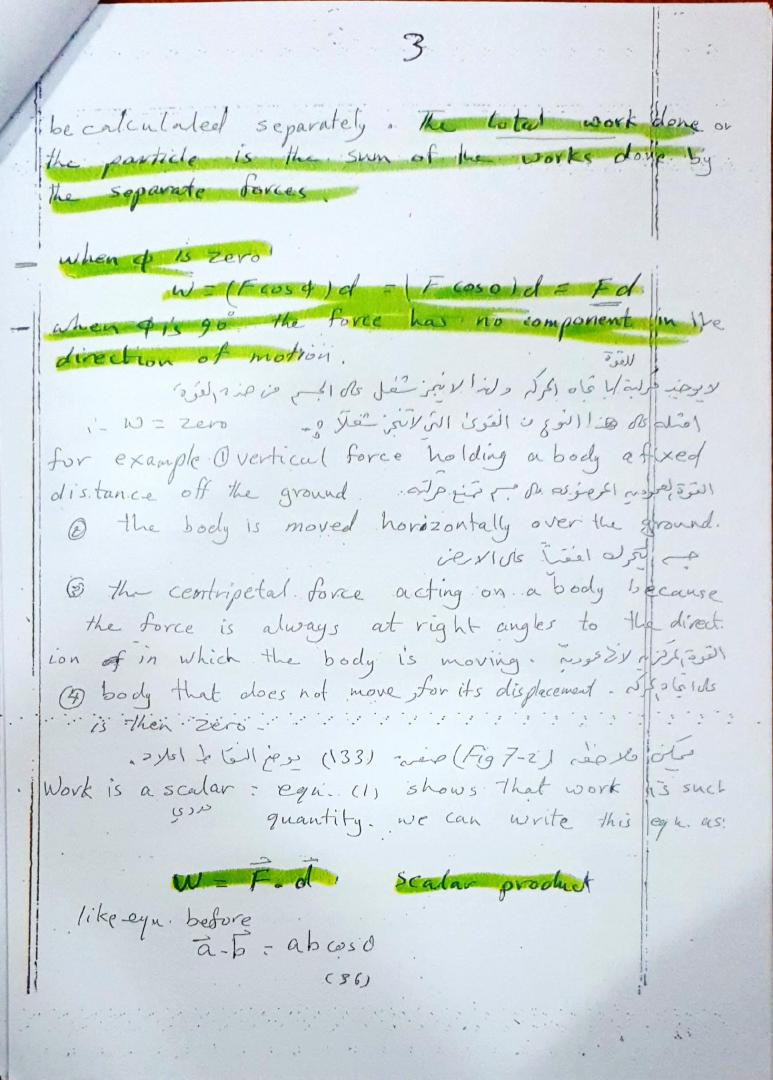 3
be calculated separately. The total work done on
the particle is the sum of the works done by
the separate forces.
when ϕ is zero
W = (F cos ϕ) d = (F cos 0) d = Fd
when ϕ is 90° the force has no component in the
direction of motion.
للقوة
لا يوجد مركبة باتجاه الحركة ولهذا لا ينجز شغل على الجسم من هذه القوة
∴ W = zero امثلة على هذا النوع من القوى التي لا تنجز شغلاً :-
for example ① vertical force holding a body a fixed
distance off the ground. القوة العمودية المرفوعه على جسم تمنع حركته.
② the body is moved horizontally over the ground.
جسم يتحرك افقياً على الارض
③ the centripetal force acting on a body because
the force is always at right angles to the direct
ion in which the body is moving. القوة المركزية لانها عمودية
④ body that does not move, for its displacement. على اتجاه الحركة
is then zero.
يمكن ملاحظة (Fig 7-2) صفحة (133) يوضح النقاط اعلاه.
Work is a scalar : equ. (1) shows that work is such
عددي quantity. we can write this equ. as:
W = F⃗ . d⃗ . Scalar product
like equ. before
a⃗ . b⃗ = ab cos θ
(36)